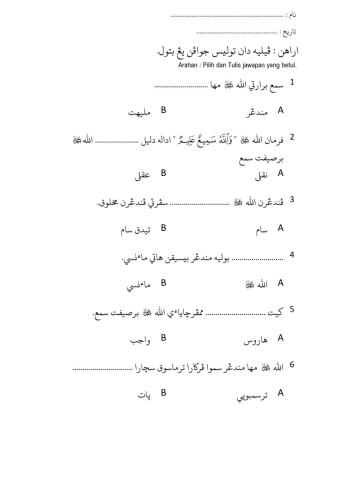 نام : ............................................................
تاريخ : ............................................
ارهن : ڤيليه دان توليس جواڤن يڠ بتول.
Arahan : Pilih dan Tulis jawapan yang betul.
1 سمع برارتي الله ﷻ مها ...........................
A مندڠر B مليهت
2 فرمان الله ﷻ " وَٱللَّهُ سَمِيعٌ عَلِيمٌ " اداله دليل ...................... الله ﷻ
برصيفت سمع
A نقلي B عقلي
3 ڤندڠرن الله ﷻ .............................. سڤرتي ڤندڠرن مخلوق.
A سام B تيدق سام
4 .......................... بوليه مندڠر بيسيقن هاتي ماءنسي.
A الله ﷻ B ماءنسي
5 كيت .............................. ممڤرچاياءي الله ﷻ برصيفت سمع.
A هاروس B واجب
6 الله ﷻ مها مندڠر سموا ڤركارا ترماسوق سچارا ..............................
A ترسمبوڽي B ڽات